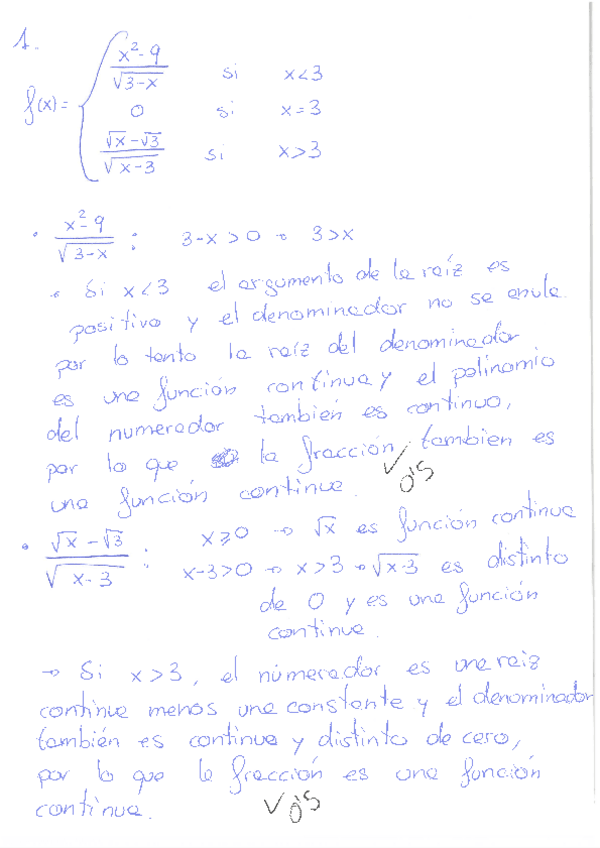 1.
f(x) = { x²-9 / √3-x si x<3
0 si x=3
√x-√3 / √x-3 si x>3
• x²-9 / √3-x : 3-x>0 → 3>x
• Si x<3 el argumento de la raíz es
positivo y el denominador no se anula
por lo tanto la raíz del denominador
es una función continua y el polinomio
del numerador también es continuo,
por lo que la fracción también es
una función continua. ✓ 0'5
• √x-√3 / √x-3 : x⩾0 → √x es función continua
x-3>0 → x>3 → √x-3 es distinto
de 0 y es una función
continua.
→ Si x>3, el numerador es una raiz
continua menos una constante y el denominador
también es continua y distinto de cero,
por lo que la fracción es una función
continua. ✓ 0'5